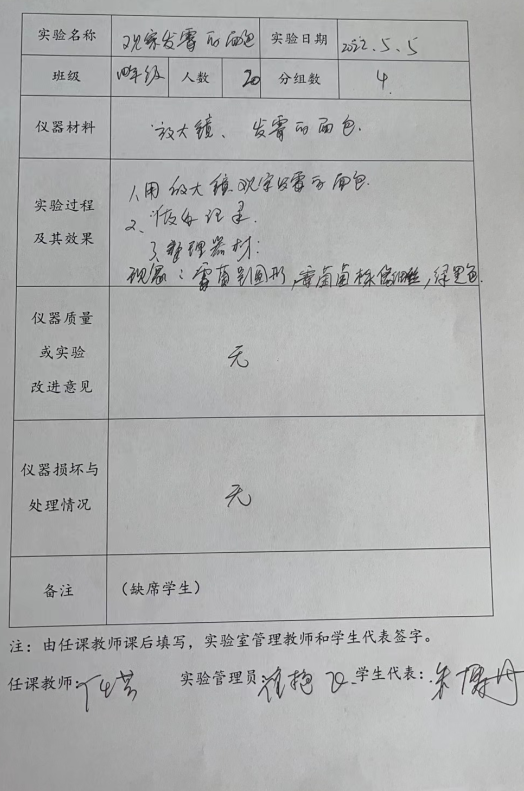 实验名称 观察发霉的面包 实验日期 2022.5.5
班级 四年级 人数 20 分组数 4.
仪器材料 放大镜、发霉的面包.
实验过程
及其效果
1、用放大镜观察发霉的面包.
2、做好记录.
3、整理器材:
现象:霉菌呈圆形,霉菌菌株像细丝,绿黑色.
仪器质量
或实验
改进意见
无
仪器损坏与
处理情况
无
备注 (缺席学生)
注:由任课教师课后填写,实验室管理教师和学生代表签字。
任课教师: 实验管理员: 学生代表: